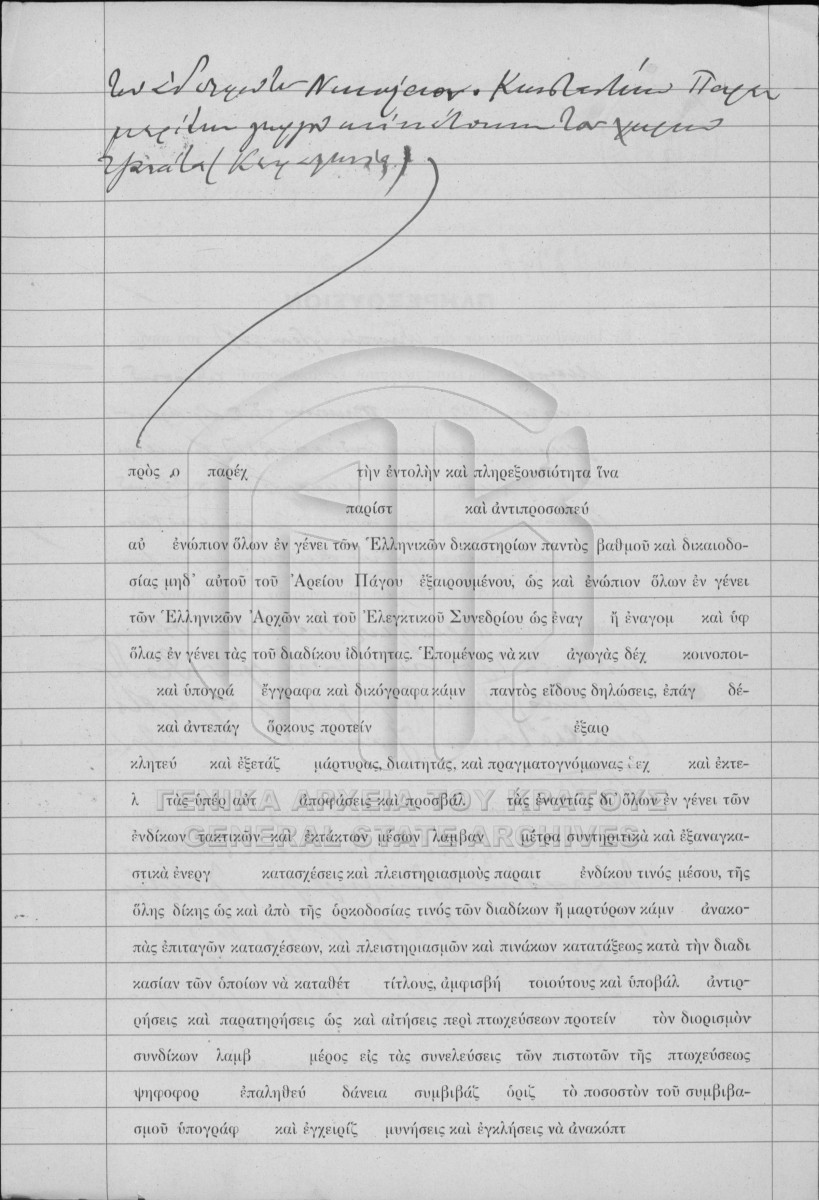 πρὸς ο παρέχ τὴν ἐντολὴν καὶ πληρεξουσιότητα ἵνα
παρίστ καὶ ἀντιπροσωπεύ
αὐ ἐνώπιον ὅλων ἐν γένει τῶν Ἑλληνικῶν δικαστηρίων παντὸς βαθμοῦ καὶ δικαιοδο-
σίας μηδ' αὐτοῦ τοῦ Ἀρείου Πάγου ἐξαιρουμένου, ὡς καὶ ἐνώπιον ὅλων ἐν γένει
τῶν Ἑλληνικῶν Ἀρχῶν καὶ τοῦ Ἐλεγκτικοῦ Συνεδρίου ὡς ἐναγ ἢ ἐναγομ καὶ ὑφ
ὅλας ἐν γένει τὰς τοῦ διαδίκου ἰδιότητας. Ἑπομένως νὰ κιν ἀγωγὰς δέχ κοινοποι-
καὶ ὑπογρά ἔγγραφα καὶ δικόγραφα κάμν παντὸς εἴδους δηλώσεις, ἐπάγ δέ-
καὶ ἀντεπάγ ὅρκους προτείν ἐξαιρ
κλητεύ καὶ ἐξετάζ μάρτυρας, διαιτητάς, καὶ πραγματογνώμονας δεχ καὶ ἐκτε-
λ τὰς ὑπὲρ αὐτ ἀποφάσεις καὶ προσβάλ τὰς ἐναντίας δι' ὅλων ἐν γένει τῶν
ΓΕΝΙΚΑ ΑΡΧΕΙΑ ΤΟΥ ΚΡΑΤΟΥΣ
ἐνδίκων τακτικῶν καὶ ἐκτάκτων μέσων λαμβαν μέτρα συντηρητικὰ καὶ ἐξαναγκα-
GENERAL STATE ARCHIVES
στικὰ ἐνεργ κατασχέσεις καὶ πλειστηριασμοὺς παραιτ ἐνδίκου τινὸς μέσου, τῆς
ὅλης δίκης ὡς καὶ ἀπὸ τῆς ὁρκοδοσίας τινὸς τῶν διαδίκων ἢ μαρτύρων κάμν ἀνακο-
πὰς ἐπιταγῶν κατασχέσεων, καὶ πλειστηριασμῶν καὶ πινάκων κατατάξεως κατὰ τὴν διαδι
κασίαν τῶν ὁποίων νὰ καταθέτ τίτλους, ἀμφισβή τοιούτους καὶ ὑποβάλ ἀντιρ-
ρήσεις καὶ παρατηρήσεις ὡς καὶ αἰτήσεις περὶ πτωχεύσεων προτείν τὸν διορισμὸν
συνδίκων λαμβ μέρος εἰς τὰς συνελεύσεις τῶν πιστωτῶν τῆς πτωχεύσεως
ψηφοφορ ἐπαληθεύ δάνεια συμβιβάζ ὁρίζ τὸ ποσοστὸν τοῦ συμβιβα-
σμοῦ ὑπογράφ καὶ ἐγχειρίζ μυνήσεις καὶ ἐγκλήσεις νὰ ἀνακόπτ